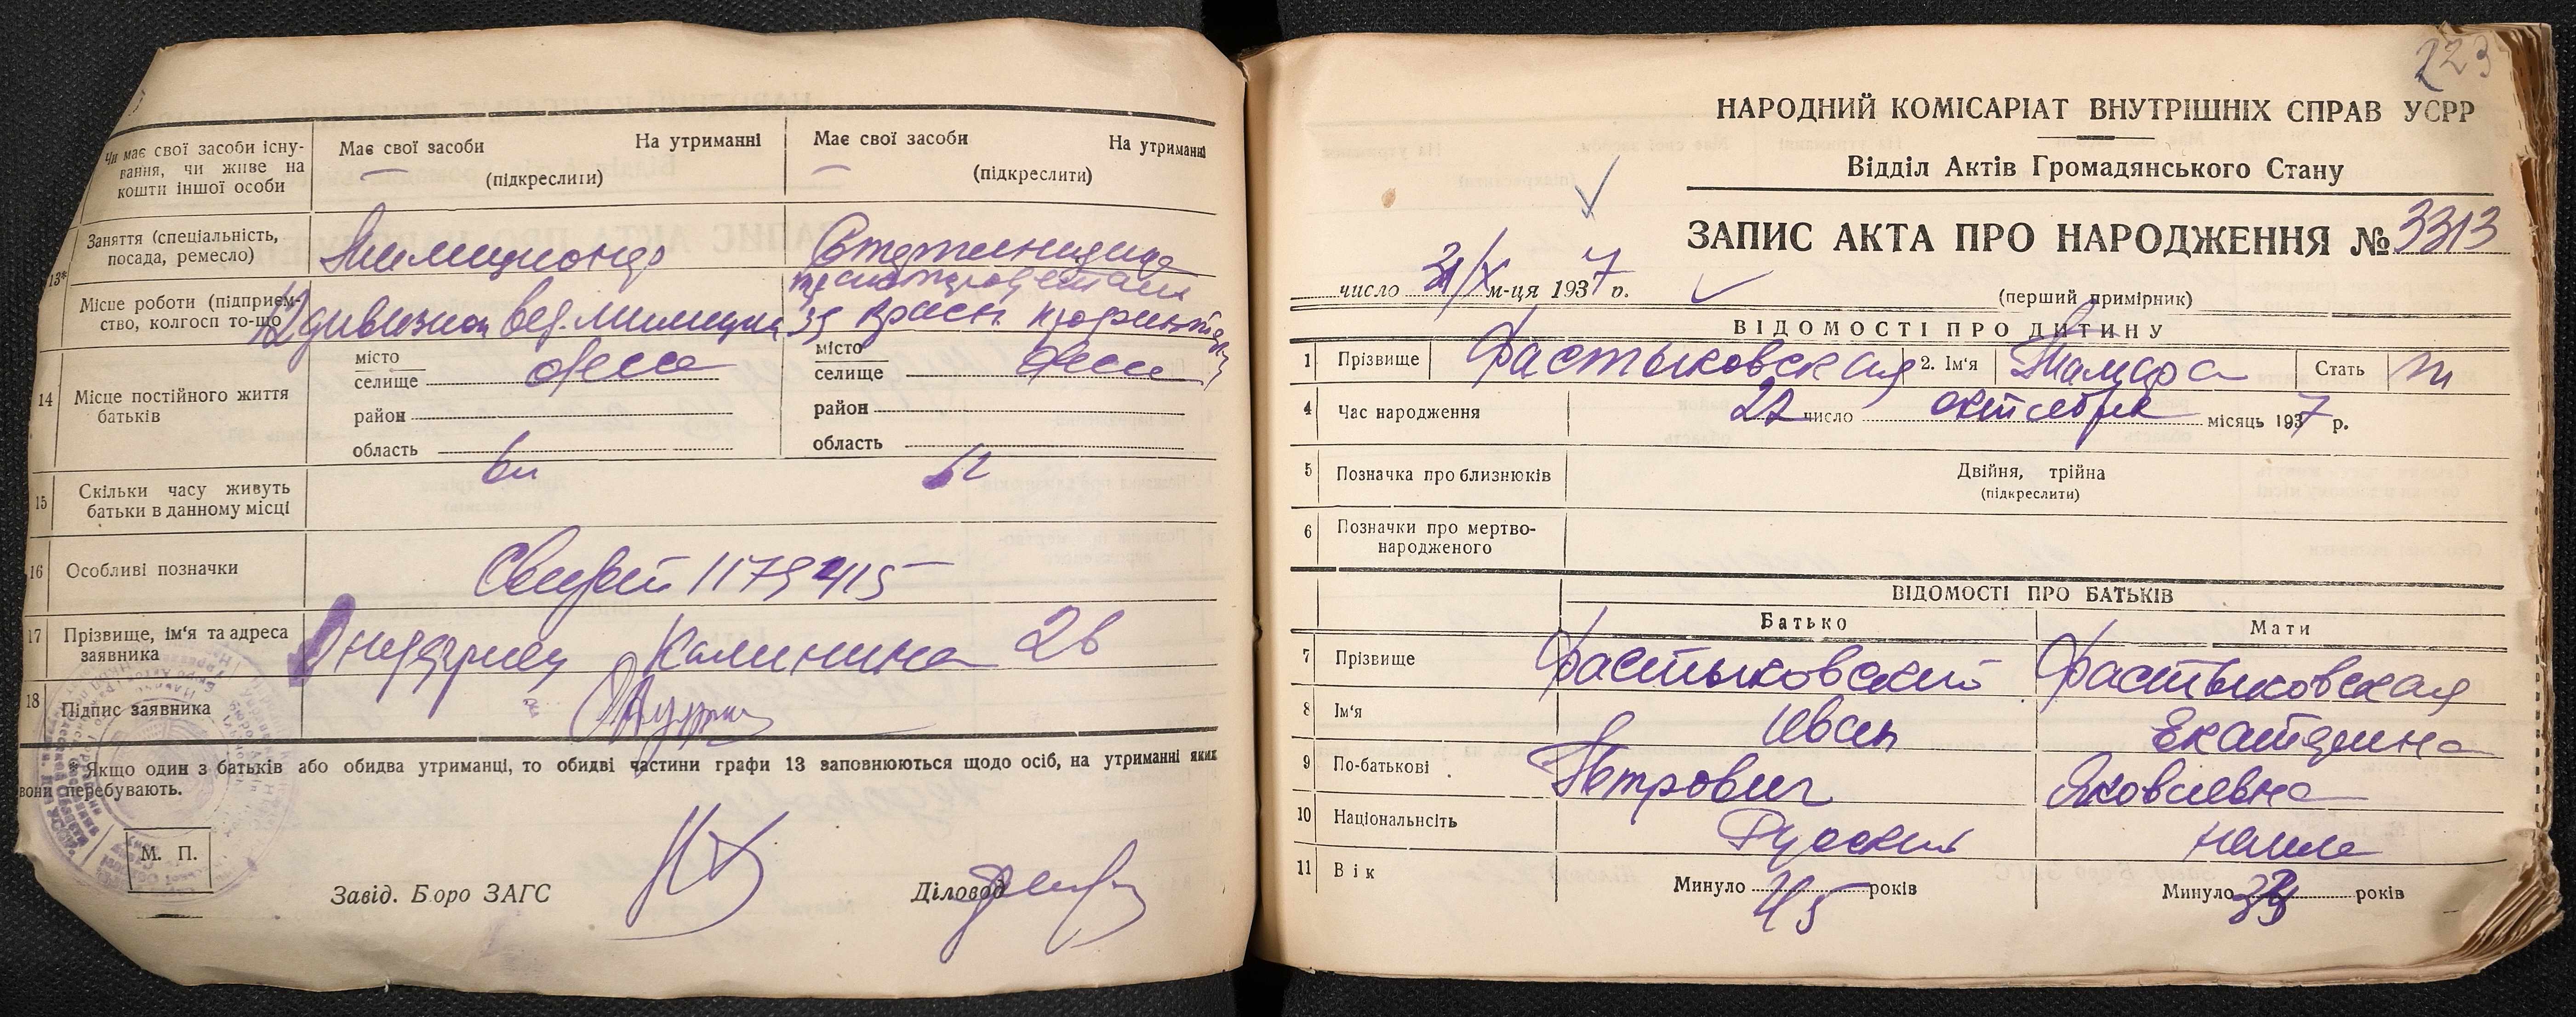 Чи має свої засоби існу-
вання, чи живе на
кошти іншої особи
Має свої засоби На утриманні
(підкреслити)
Має свої засоби На утриманні
(підкреслити)
13*
Заняття (спеціальність,
посада, ремесло)
Милиционер
Місце роботи (підприєм-
ство, колгосп то-що
дивизион вед. милиции
14
Місце постійного життя
батьків
місто
селище Одесса
район
область
місто
селище Одесса
район
область
15
Скільки часу живуть
батьки в данному місці
16
Особливі позначки
17
Прізвище, ім'я та адреса
заявника
Калинина 26
18
Підпис заявника
* Якщо один з батьків або обидва утриманці, то обидві частини графи 13 заповнюються щодо осіб, на утриманні яких
вони перебувають.
М. П.
Завід. Бюро ЗАГС
Діловод
223
НАРОДНИЙ КОМІСАРІАТ ВНУТРІШНІХ СПРАВ УСРР
Відділ Актів Громадянського Стану
ЗАПИС АКТА ПРО НАРОДЖЕННЯ № 3313
число 31/X м-ця 1937 р.
(перший примірник)
ВІДОМОСТІ ПРО ДИТИНУ
1 Прізвище Фастыковская 2. Ім'я Тамара Стать
4 Час народження 22 число октября місяць 1937 р.
5 Позначка про близнюків Двійня, трійна
(підкреслити)
6 Позначки про мертво-
народженого
ВІДОМОСТІ ПРО БАТЬКІВ
Батько Мати
7 Прізвище Фастыковский Фастыковская
8 Ім'я Иван Екатерина
9 По-батькові Петрович Яковлевна
10 Національнсіть Руский
11 Вік Минуло 45 років Минуло років